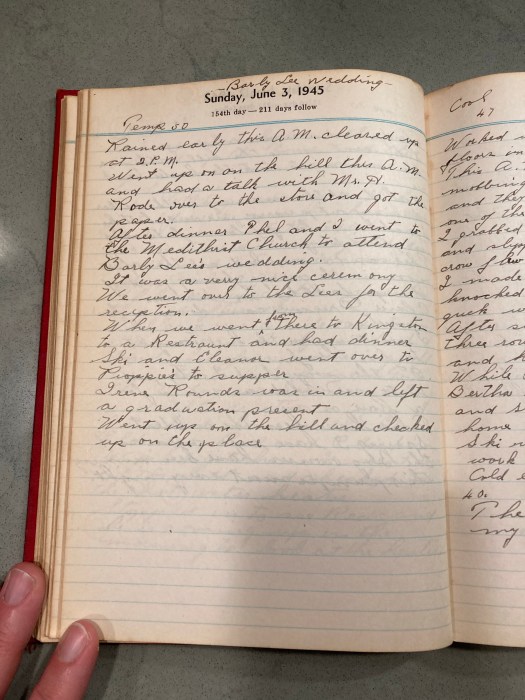 - Barby Lee Wedding -
Sunday, June 3, 1945
154th day—211 days follow
Temp 50
Rained early this A.M. cleared up
at 2.P.M.
Went up on on the hill this A.M.
and had a talk with Mr. H.
Rode over to the store and got the
paper.
After dinner Phil and I went to
the Medithist Church to attend
Barby Lee's wedding.
It was a very nice ceremony
We went over to the Lees for the
reception.
When we went from there to Kingston
to a Restraunt and had dinner
Ski and Eleanor went over to
to supper
Irene Rounds was in and left
a graduation present
Went up on the hill and checked
up on the place
Cool
47
Worked
floors in
This A.
mobbing
and they
one of the
I grabbed
and
crow
I made
knocked
quick
After s
three
and
While
Bertha
and s
home
Ski
work
Cold
40.
The
my